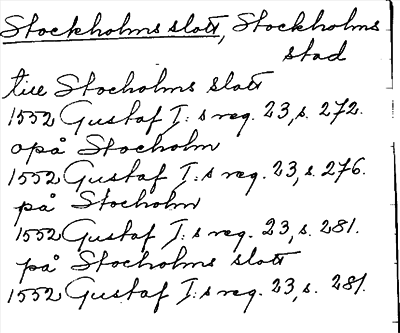 Stockholms slott, Stockholms
stad
till Stocholms slott
1552 Gustaf I:s reg. 23, s. 272.
opå Stocholm
1552 Gustaf I:s reg. 23, s. 276.
på Stocholm
1552 Gustaf I:s reg. 23, s. 281.
på Stocholms slott
1552 Gustaf I:s reg. 23, s. 281.